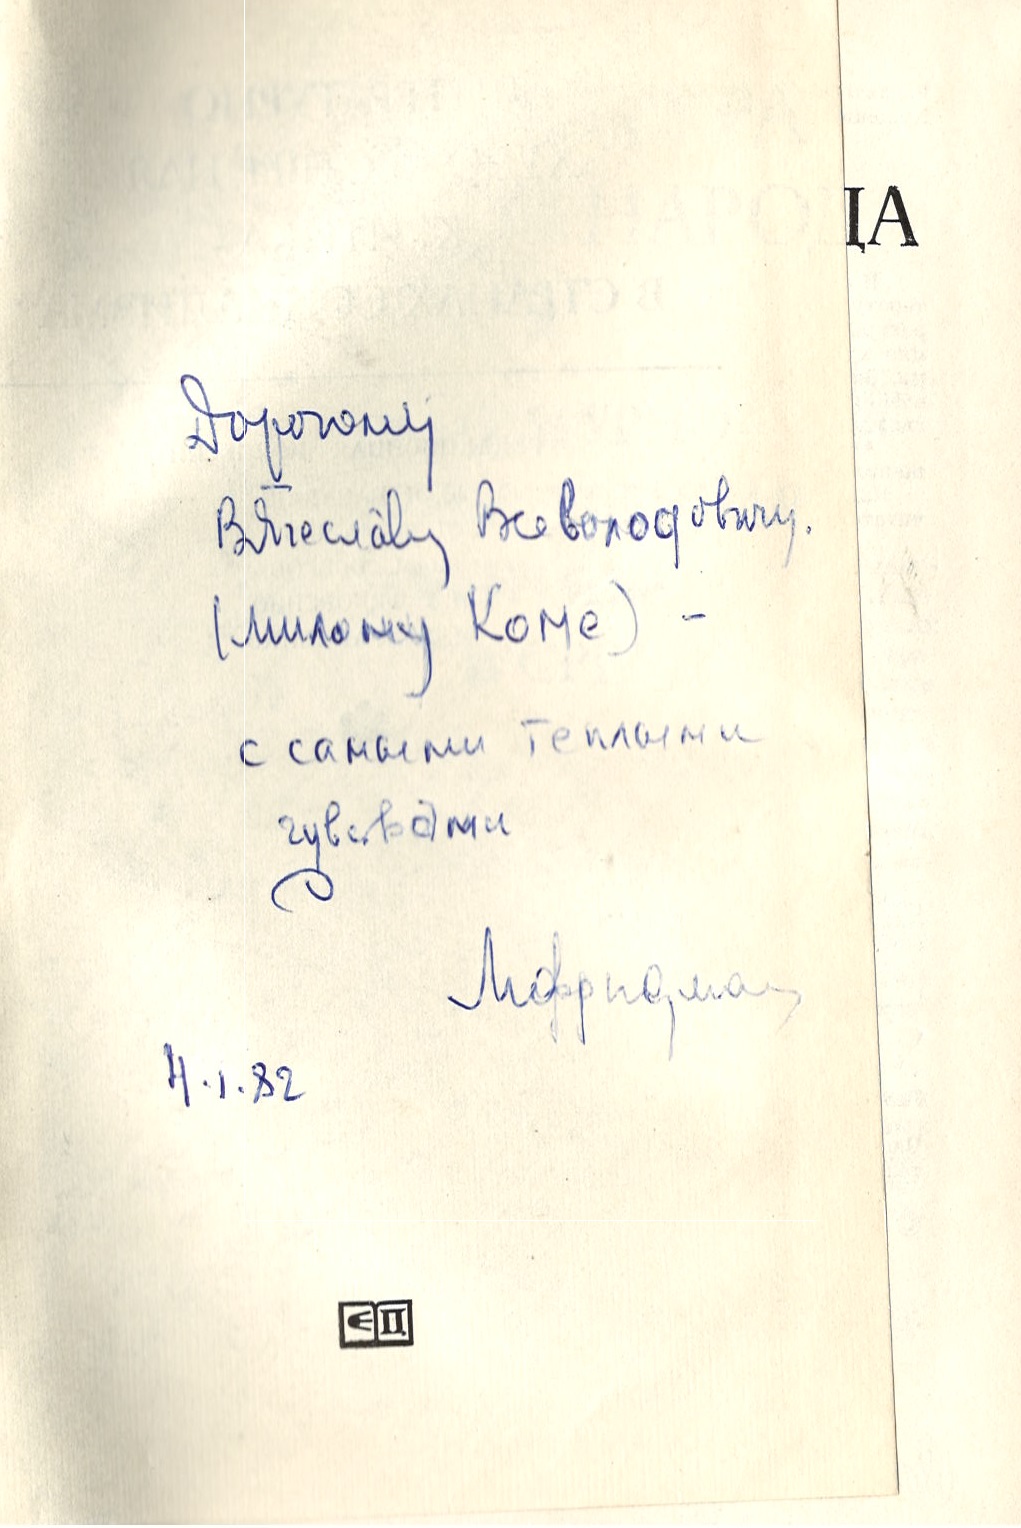 ЦА
Дорогому
Вячеславу Всеволодовичу.
(милому Коме) –
с самыми теплыми
чувствами
4.I.82